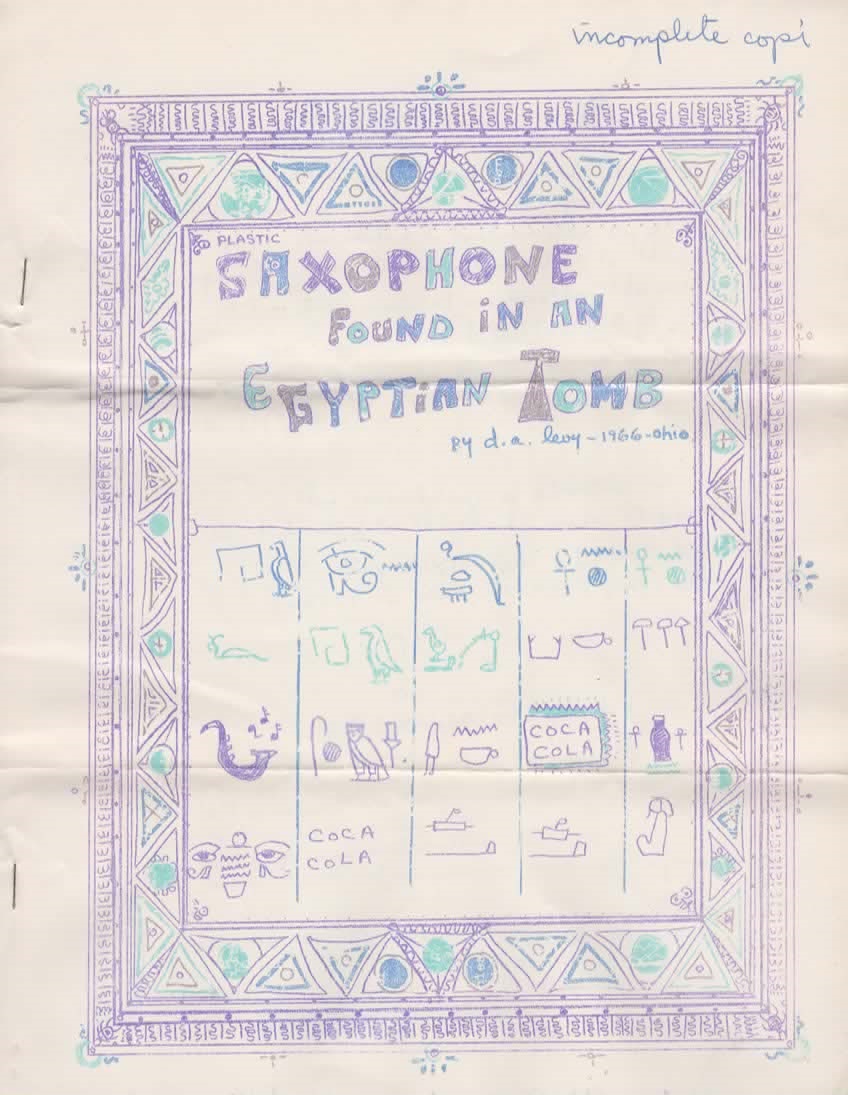 incomplete copi
PLASTIC
SAXOPHONE
FOUND iN AN
EGYPTiAN TOMB
By d.a. levy - 1966 - Ohio
COCA
COLA
COCA
COLA